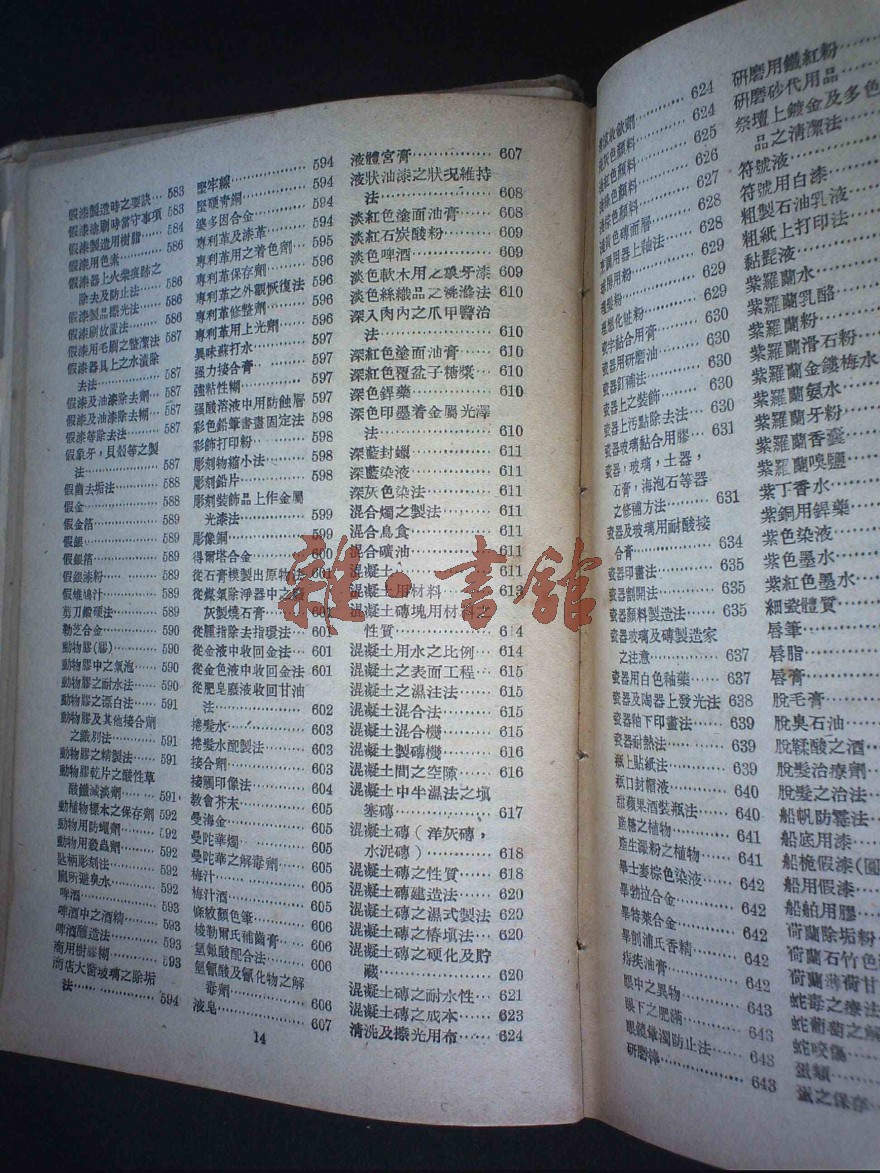 假漆製造時之要訣… 583
假漆塗刷時當守事項 583
假漆製造用樹脂…… 584
假漆用色素………… 586
假漆器上火柴痕跡之
除去及防止法…… 586
假漆製品磨光法…… 587
假漆刷放置法……… 587
假漆用毛刷之整潔法 587
假漆器具上之水漬除
去法……………… 587
假漆及油漆除去劑… 587
假漆及油漆除去糊… 587
假漆等除去法……… 587
假象牙,貝殼等之製
法………………… 587
假齒去垢法………… 588
假金………………… 588
假金箔……………… 589
假銀………………… 589
假銀箔……………… 589
假銀漆粉…………… 589
假雉鳩汁…………… 589
剪刀鍛硬法………… 589
勒芝合金…………… 590
動物膠(膠)……… 590
動物膠中之氣泡…… 590
動物膠之耐水法…… 590
動物膠之漂白法…… 590
動物膠及其他接合劑
之識別法………… 591
動物膠之精製法…… 591
動物膠乾片之酸性草
酸鐵減淡劑……… 591
動植物標本之保存劑 592
動物用防蠅劑……… 592
動物用殺蟲劑……… 592
匙柄彫刻法………… 592
廁所避臭水………… 592
啤酒………………… 593
啤酒中之酒精……… 593
啤酒釀造法………… 593
商用樹膠糊………… 593
商店大窗玻璃之除垢
法………………… 594
堅牢線……………… 594
堅硬青銅…………… 594
婆多因合金………… 594
專利革及漆革……… 594
專利革用之着色劑… 595
專利革保存劑……… 596
專利革之外觀恢復法 596
專利革修整劑……… 596
專利革用上光劑…… 596
異味蘇打水………… 596
强力接合膏………… 597
強粘性糊…………… 597
强酸溶液中用防蝕層 597
彩色鉛筆書畫固定法 598
彩飾打印粉………… 598
彫刻物縮小法……… 598
彫刻鉛片…………… 598
彫刻裝飾品上作金屬
光漆法…………… 599
彫像銅……………… 599
得爾塔合金………… 600
從石膏模製出原物法 601
從煤氣除淨器中之
灰製燒石膏
從腫指除去指環法… 601
從金液中收回金法… 601
從金色液中收回金法 601
從肥皂廢液收回甘油
法………………… 602
捲髮水……………… 603
捲髮水配製法……… 603
接合劑……………… 603
接觸印像法………… 604
教會芥末…………… 605
曼海金……………… 605
曼陀華燭…………… 605
曼陀華之解毒劑…… 605
梅汁………………… 605
梅汁酒……………… 605
條紋顏色筆………… 605
梭勒爾氏補齒膏…… 606
氫氰酸配合法……… 606
氫氰酸及氰化物之解
毒劑……………… 606
液皂………………… 607
液體宮膏…………… 607
液狀油漆之狀況維持
法………………… 608
淡紅色塗面油膏…… 608
淡紅石炭酸粉……… 609
淡色啤酒…………… 609
淡色軟木用之象牙漆 609
淡色絲織品之滌滌法 609
深入肉內之爪甲醫治
法………………… 610
深紅色塗面油膏…… 610
深紅色覆盆子糖漿… 610
深色銲藥…………… 610
深色印墨着金屬光澤
法………………… 610
深藍封蠟…………… 611
深藍染液…………… 611
深灰色染法………… 611
混合燭之製法……… 611
混合鳥食…………… 611
混合礦油…………… 611
混凝土……………… 611
混凝土用材料……… 613
混凝土磚塊用材料之
性質……………… 614
混凝土用水之比例… 614
混凝土之表面工程… 615
混凝土之濕注法…… 615
混凝土混合法……… 615
混凝土混合機……… 615
混凝土製磚機……… 616
混凝土間之空隙…… 616
混凝土中半濕法之填
塞磚……………… 617
混凝土磚(洋灰磚,
水泥磚)………… 618
混凝土磚之性質…… 618
混凝土磚建造法…… 620
混凝土磚之濕式製法 620
混凝土磚之樁填法… 620
混凝土磚之硬化及貯
藏………………… 620
混凝土磚之耐水性… 621
混凝土磚之成本…… 623
清洗及擦光用布…… 624
14
收歛劑…… 624
灰色顏料…… 624
淡紅色顏料…… 625
色顏料…… 626
棕色顏料…… 627
黃色磚面層…… 628
烹調用器上釉法…… 628
用粉…… 628
髮粉…… 629
理想化粧粉…… 629
瓷器結合用膏…… 630
瓷器用研磨油…… 630
瓷器釘補法…… 630
瓷器上之裝飾…… 630
瓷器上污點除去法… 630
瓷器玻璃黏合用膠… 631
瓷器,玻璃,土器,
石膏,海泡石等器
之修補方法…… 631
瓷器及玻璃用耐酸接
合膏…… 634
瓷器印畫法…… 635
瓷器割開法…… 635
瓷器顏料製造法…… 635
瓷器玻璃及磚製造家
之注意…… 637
瓷器用白色釉藥…… 637
瓷器及陶器上發光法 638
瓷器釉下印畫法…… 639
瓷器耐熱法…… 639
瓶上貼紙法…… 639
瓶口封帽液…… 640
甜蘋果酒裝瓶法…… 640
產糖之植物…… 641
產生澱粉之植物…… 641
畢士麥棕色染液…… 642
畢勃拉合金…… 642
畢特萊合金…… 642
畢剖浦氏香精…… 642
痔疾油膏…… 642
眼中之異物…… 643
眼下之肥滿…… 643
眼鏡暈濁防止法…… 643
研磨棒…… 643
研磨用鐵紅粉……
研磨砂代用品……
祭壇上鍍金及多色
品之清潔法……
符號液……
符號用白漆……
粗製石油乳液……
粗紙上打印法……
黏髭液……
紫羅蘭水……
紫羅蘭乳酪……
紫羅蘭粉……
紫羅蘭滑石粉……
紫羅蘭金鏤梅水……
紫羅蘭氨水……
紫羅蘭牙粉……
紫羅蘭香囊……
紫羅蘭嗅鹽……
紫丁香水……
紫銅用銲藥……
紫色染液……
紫色墨水……
紫紅色墨水……
細瓷體質……
唇筆……
唇脂……
唇膏……
脫毛膏……
脫臭石油……
脫鞣酸之酒……
脫髮治療劑……
脫髮之治法……
船帆防霉法……
船底用漆……
船桅假漆(圓
船用假漆……
船舶用膠……
荷蘭除垢粉……
荷蘭石竹色……
荷蘭薄荷甘
蛇毒之療法
蛇葡萄之解
蛇咬傷……
蛋類……
蛋之保存……
雜·書館